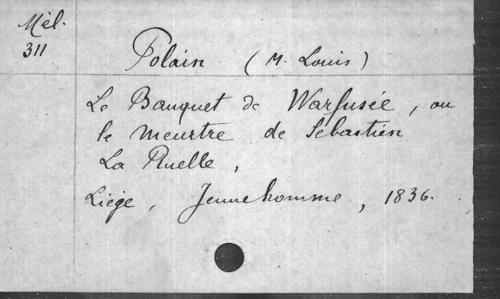 Mél.
311
Polain (M. Louis)
Le Banquet de Warfusée, ou
le meurtre de Sébastien
La Ruelle,
Liège, Jeunehomme, 1836.